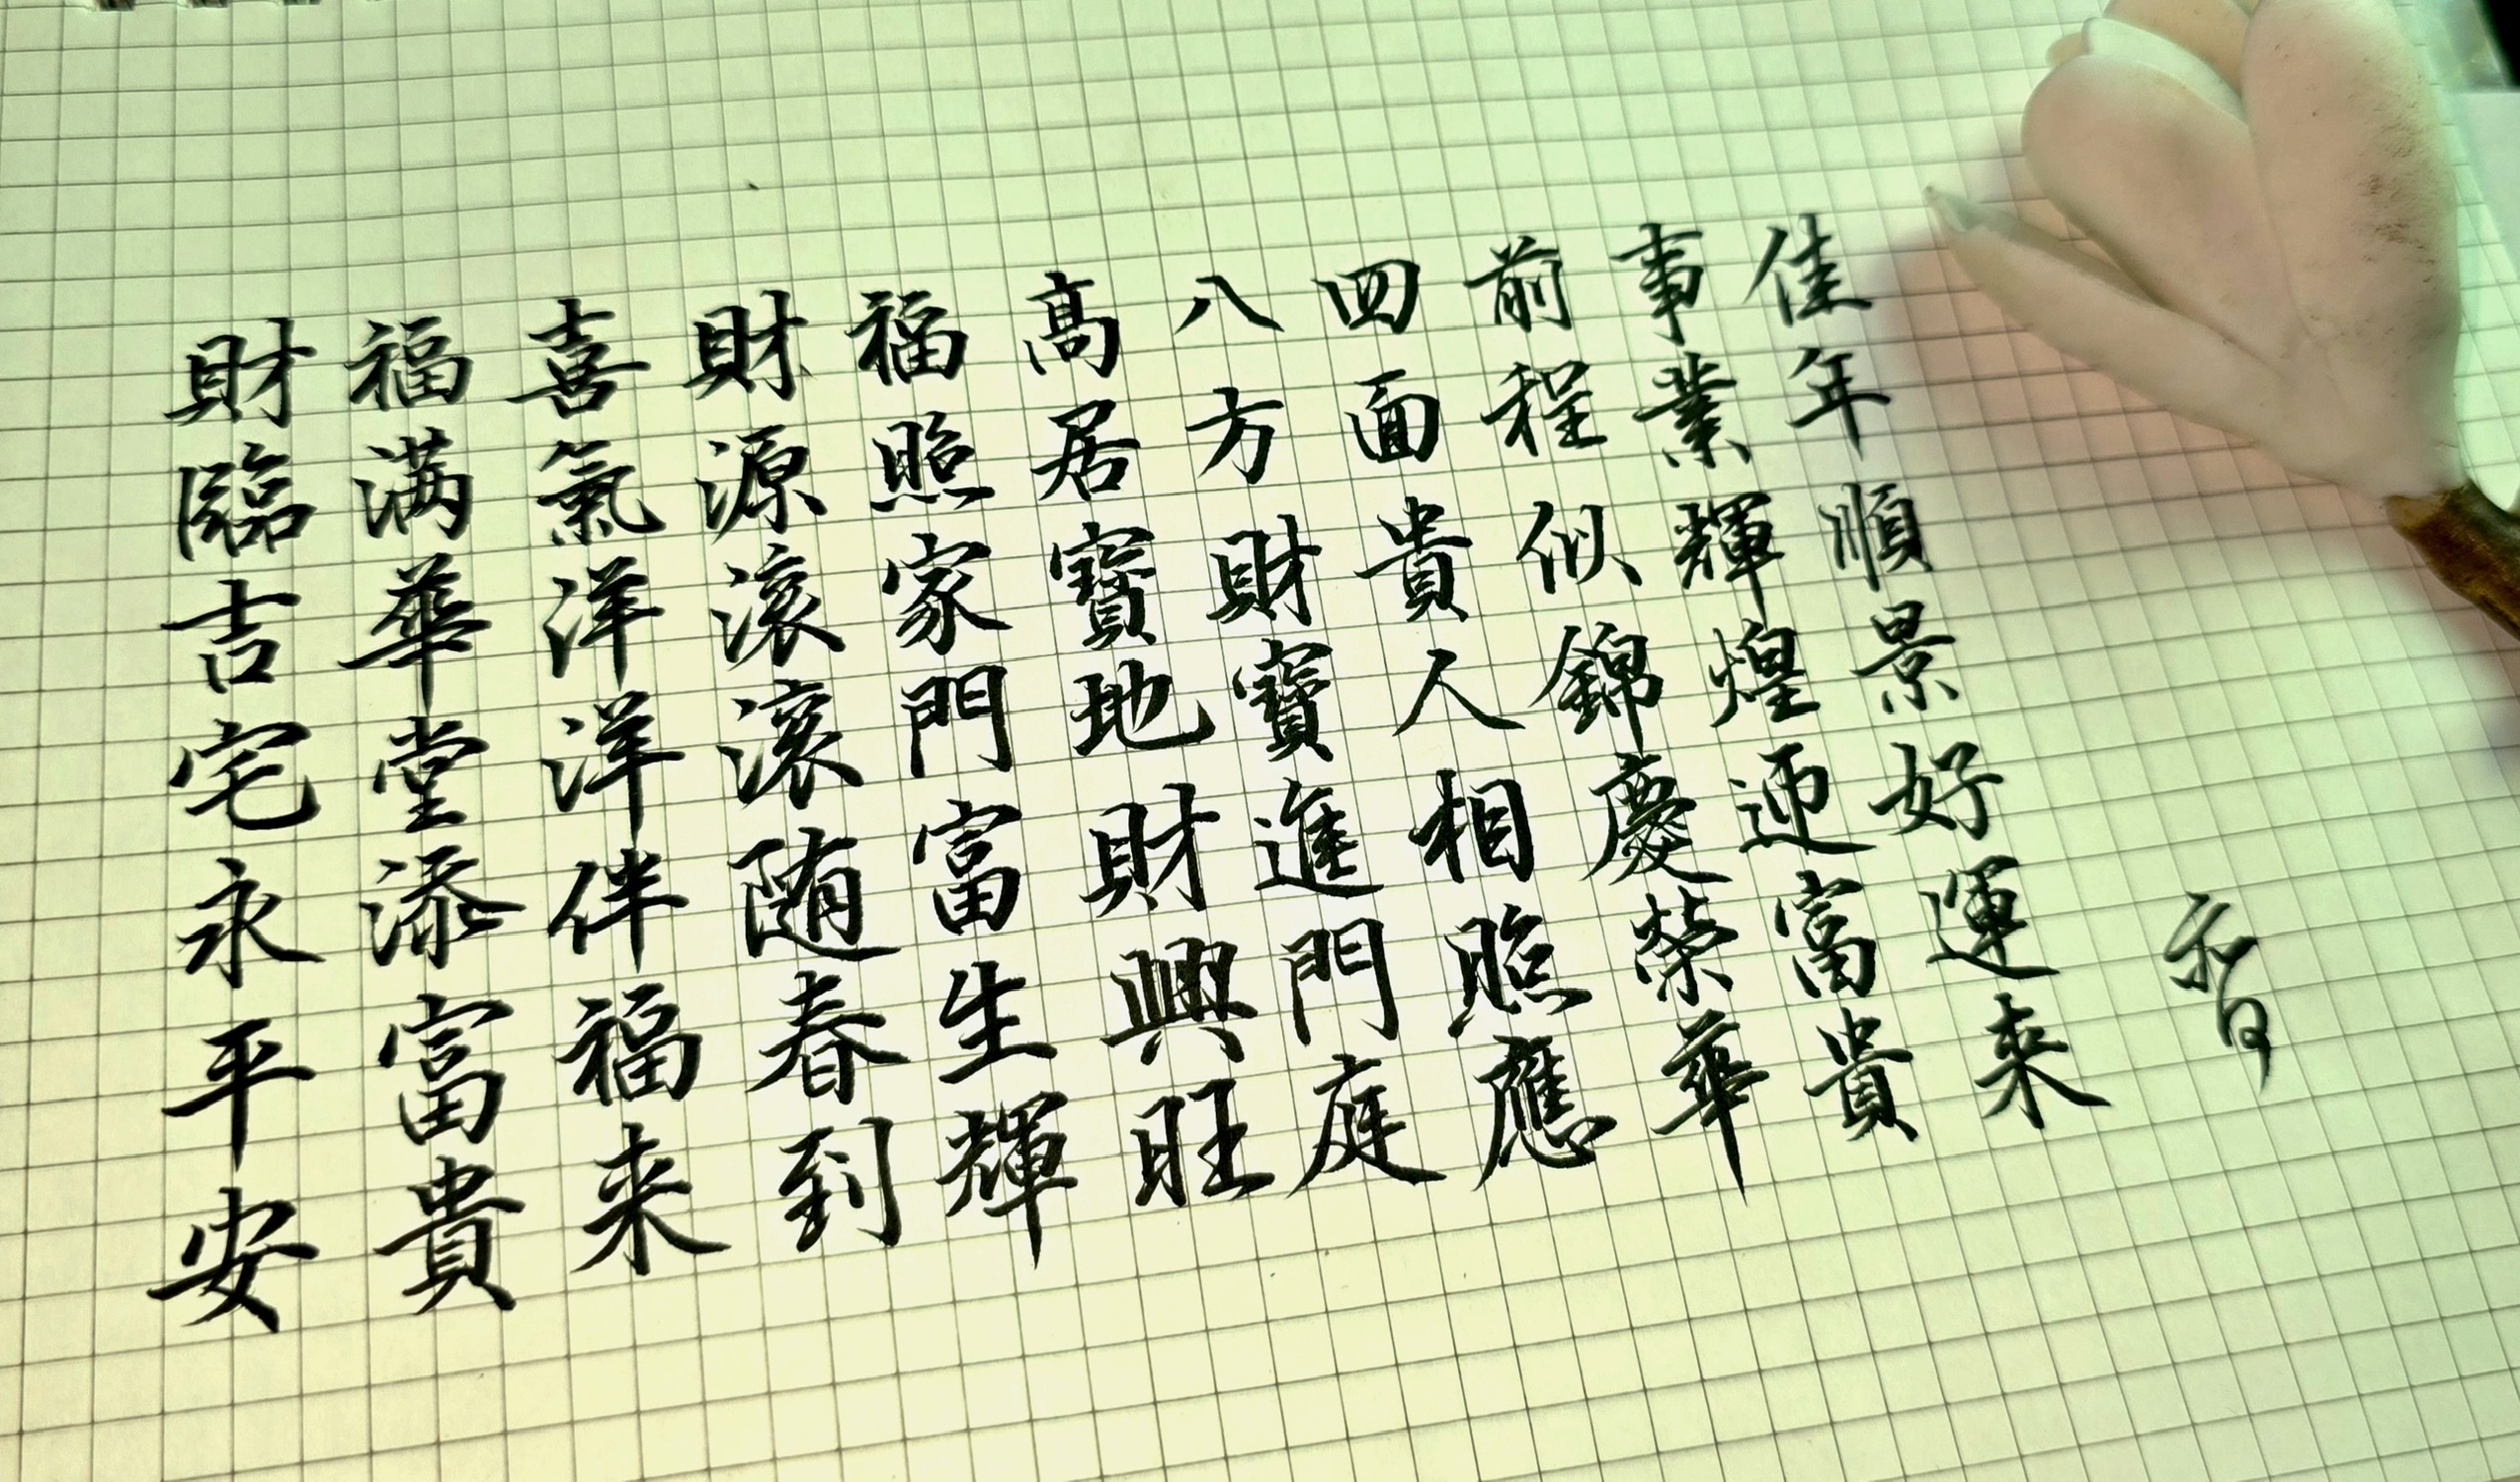 佳年順景好運来
事業輝煌迎富貴
前程似錦慶榮華
四面貴人相照應
八方財寶進門庭
高居寶地財興旺
福照家門富生輝
財源滚滚随春到
喜氣洋洋伴福来
福满華堂添富貴
財臨吉宅永平安